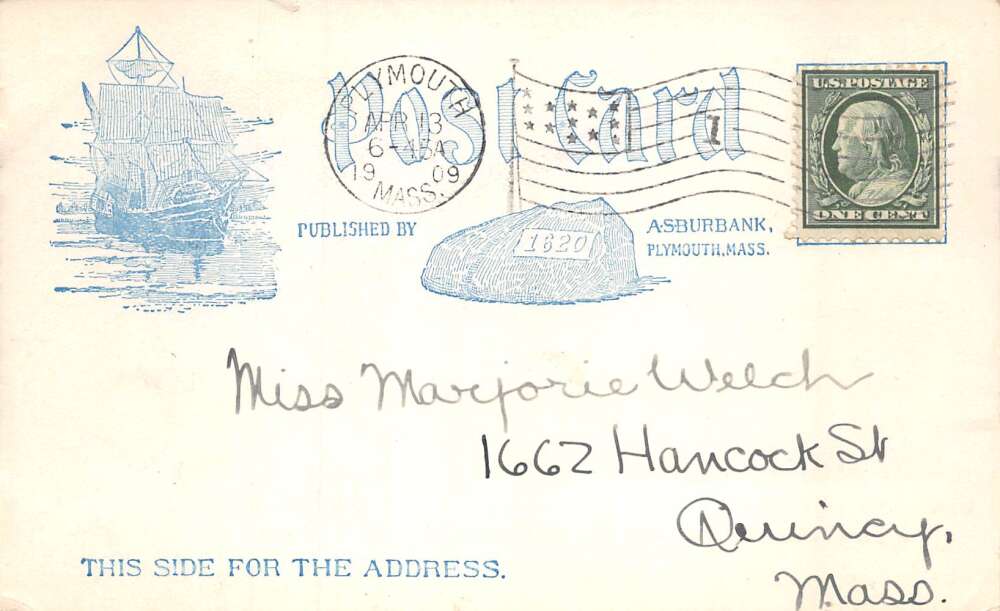 Post Card
PLYMOUTH
APR 13
6-45A
19 09
MASS.
1
U.S. POSTAGE
ONE CENT
PUBLISHED BY
1620
A.S. BURBANK,
PLYMOUTH, MASS.
Miss Marjorie Welch
1662 Hancock St
Quincy,
Mass.
THIS SIDE FOR THE ADDRESS.